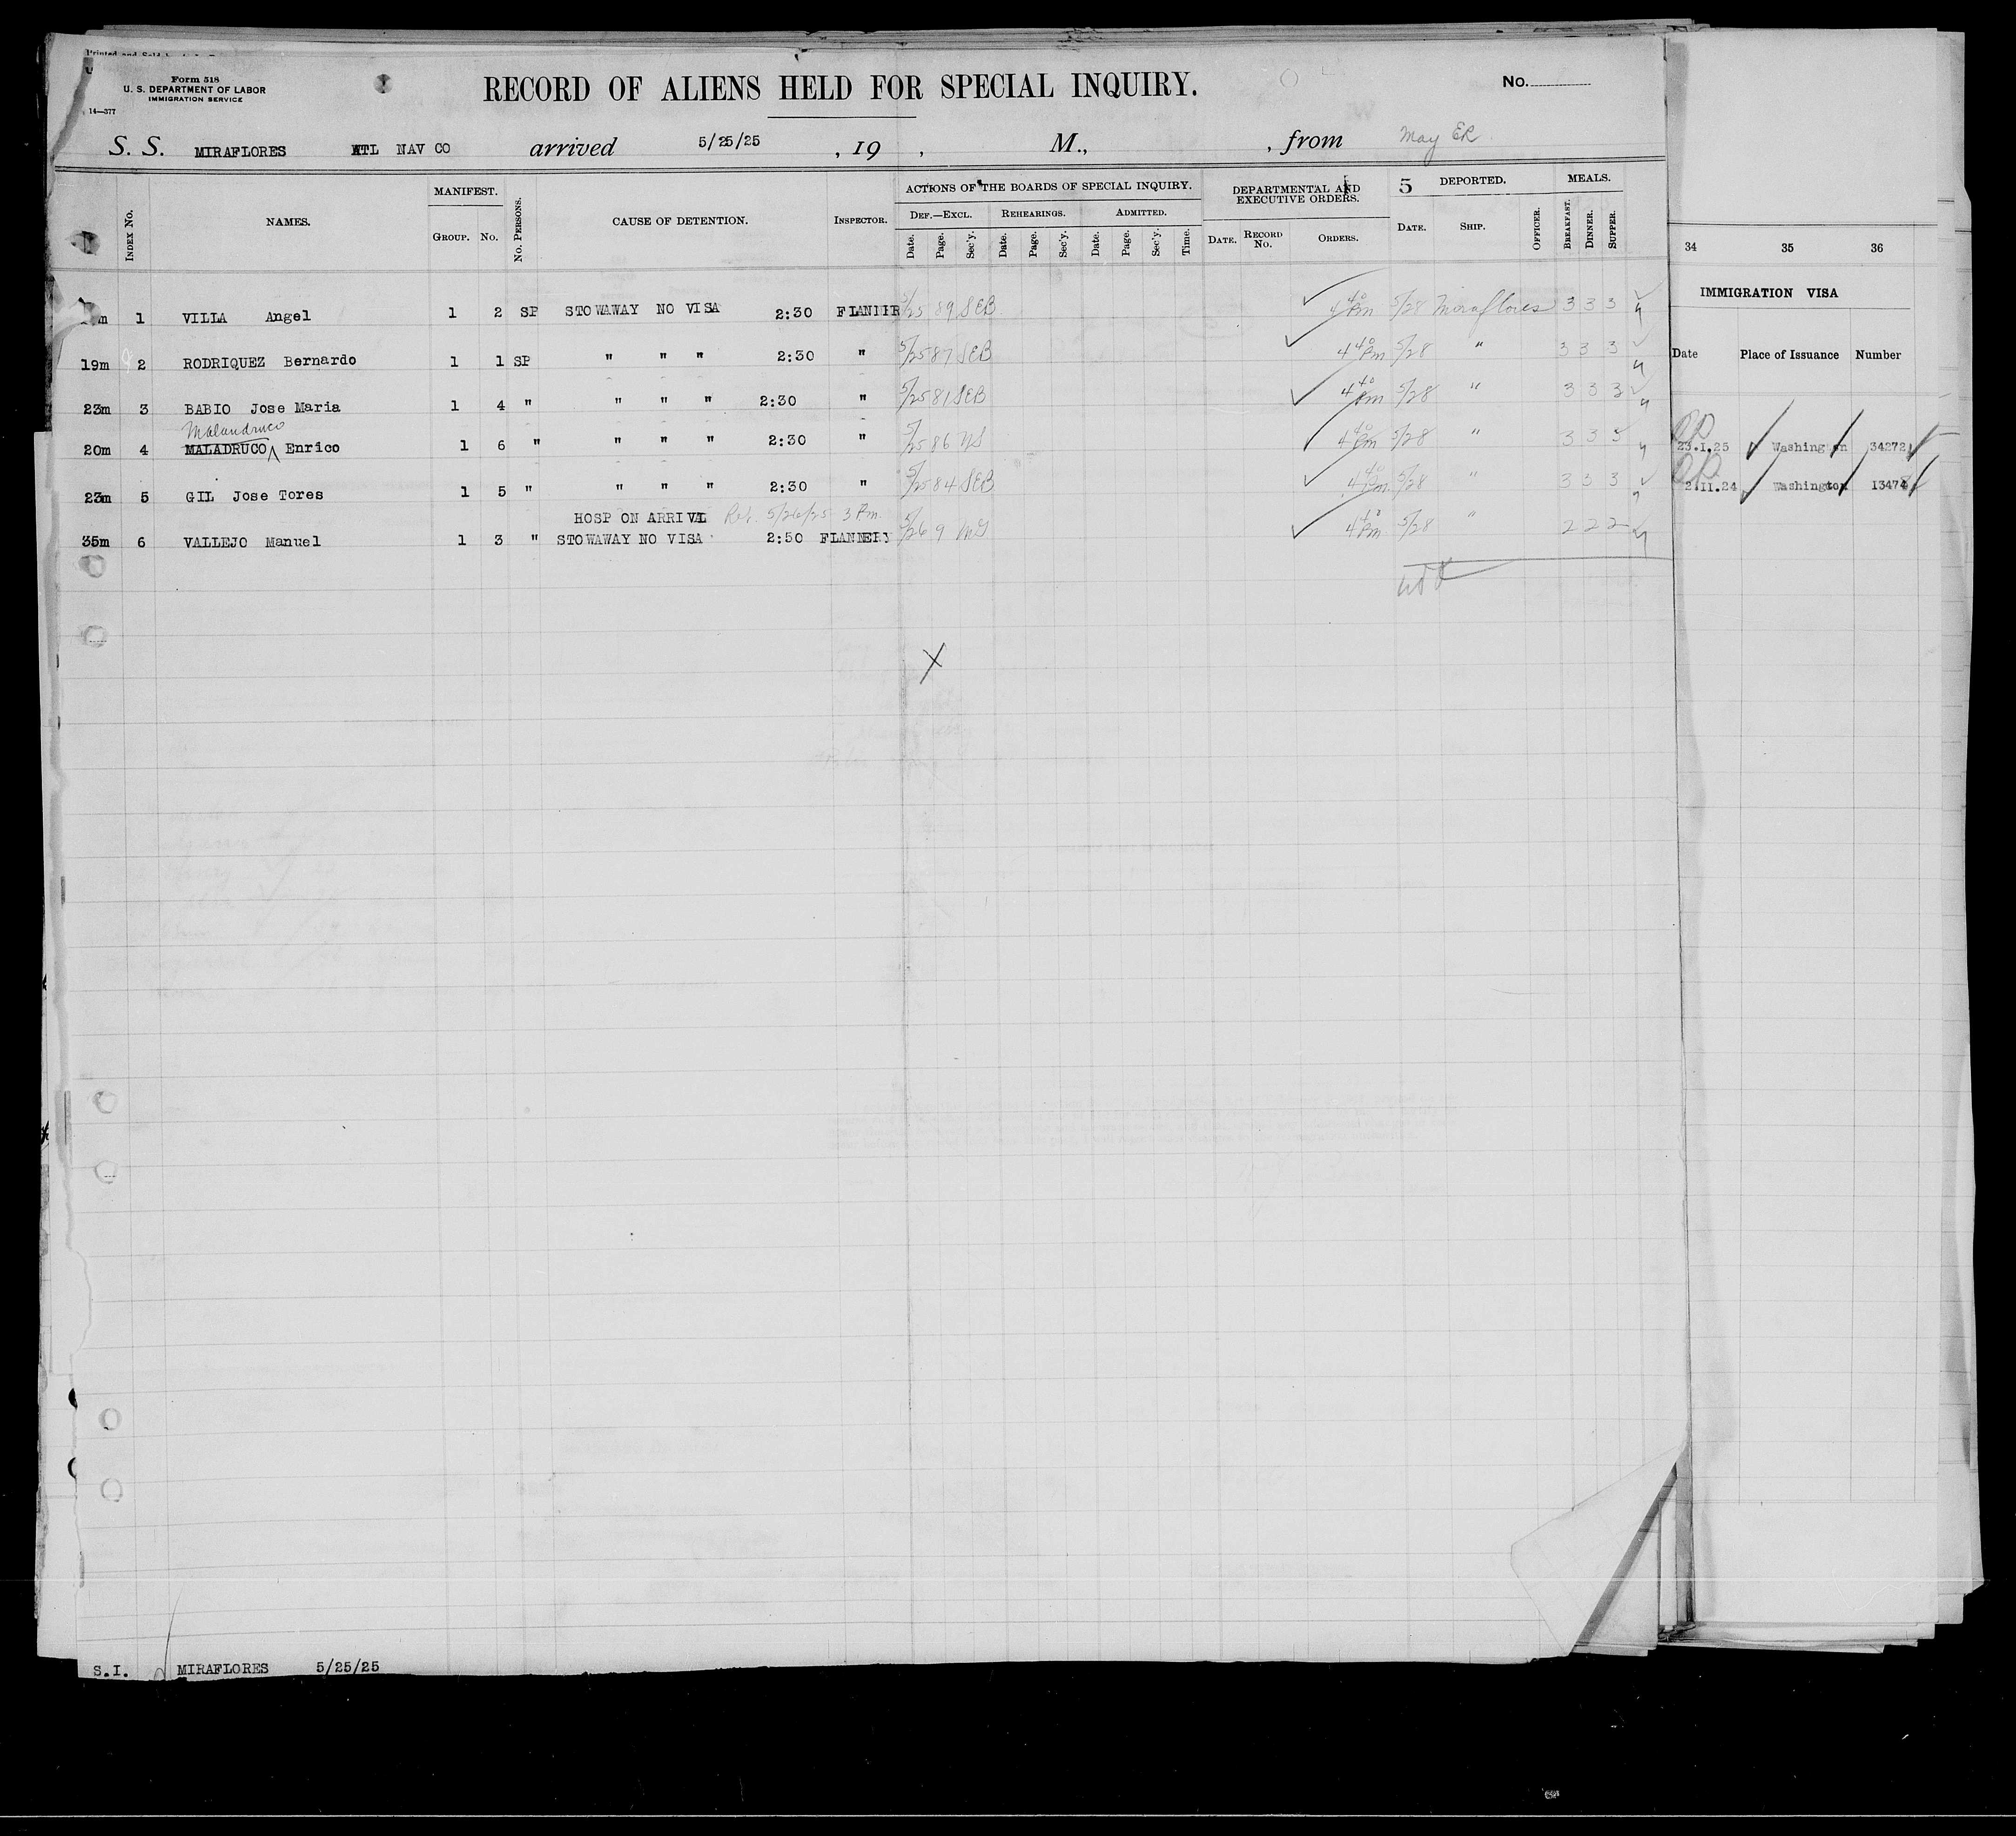 Form 518
U. S. DEPARTMENT OF LABOR
IMMIGRATION SERVICE
14—377
RECORD OF ALIENS HELD FOR SPECIAL INQUIRY.
No.
S. S. MIRAFLORES ATL NAV CO arrived 5/25/25 , 19 , M., , from May ER
INDEX No. NAMES. MANIFEST. GROUP. No. No. PERSONS. CAUSE OF DETENTION. INSPECTOR. ACTIONS OF THE BOARDS OF SPECIAL INQUIRY. DEPARTMENTAL AND EXECUTIVE ORDERS. 5 DEPORTED. MEALS.
DEF.—EXCL. REHEARINGS. ADMITTED.
Date. Page. Sec'y. Date. Page. Sec'y. Date. Page. Sec'y. Time. DATE. RECORD No. ORDERS. DATE. SHIP. OFFICER. BREAKFAST. DINNER. SUPPER.
m 1 VILLA Angel 1 2 SP STOWAWAY NO VISA 2:30 5/25 89 SEB 4 40 Pm 5/28 Miraflores 3 3 3
19m 2 RODRIQUEZ Bernardo 1 1 SP " " " 2:30 " 5/25 87 SEB 4 40 Pm 5/28 " 3 3 3
23m 3 BABIO Jose Maria 1 4 " " " " 2:30 " 5/25 81 SEB 4 40 Pm 5/28 " 3 3 3
Malandruco
20m 4 MALADRUCO Enrico 1 6 " " " " 2:30 " 5/25 86 4 40 Pm 5/28 " 3 3 3
23m 5 GIL Jose Tores 1 5 " " " " 2:30 " 5/25 84 SEB 4 40 Pm 5/28 " 3 3 3
HOSP ON ARRIVL Rel. 5/26/25 3 Pm.
35m 6 VALLEJO Manuel 1 3 " STOWAWAY NO VISA 2:50 FLANNERY 5/26 9 4 40 Pm 5/28 " 2 2 2
X
S.I. MIRAFLORES 5/25/25
34 35 36
IMMIGRATION VISA
Date Place of Issuance Number
23.I.25 Washington 34272
2.II.24 Washington 13474